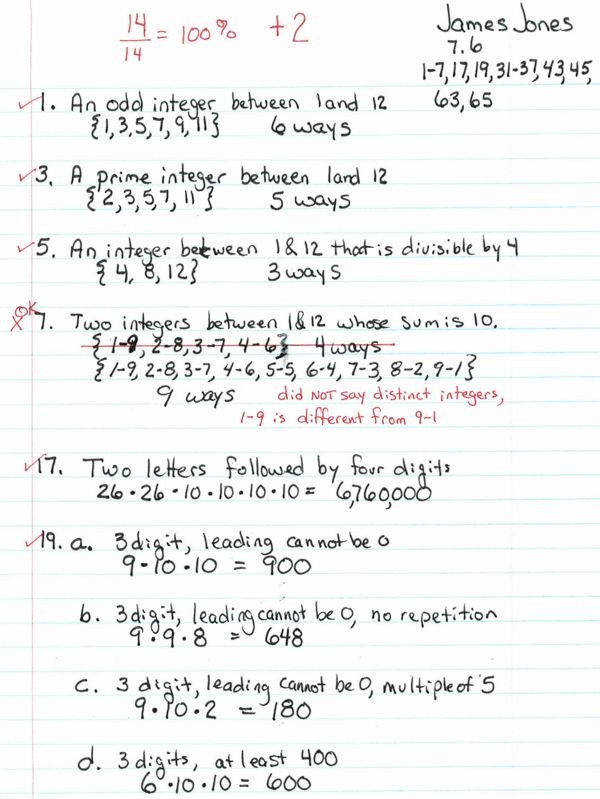 14/14 = 100% +2
James Jones
7.6
1-7,17,19,31-37,43,45,
63,65
✓1. An odd integer between 1 and 12
{1,3,5,7,9,11} 6 ways
✓3. A prime integer between 1 and 12
{2,3,5,7,11} 5 ways
✓5. An integer between 1 & 12 that is divisible by 4
{4, 8, 12} 3 ways
OK
X 7. Two integers between 1 & 12 whose sum is 10.
{1-9, 2-8, 3-7, 4-6} 4 ways
{1-9, 2-8, 3-7, 4-6, 5-5, 6-4, 7-3, 8-2, 9-1}
9 ways did NOT say distinct integers,
1-9 is different from 9-1
✓17. Two letters followed by four digits
26 • 26 • 10 • 10 • 10 • 10 = 6,760,000
✓19. a. 3 digit, leading cannot be 0
9 • 10 • 10 = 900
b. 3 digit, leading cannot be 0, no repetition
9 • 9 • 8 = 648
c. 3 digit, leading cannot be 0, multiple of 5
9 • 10 • 2 = 180
d. 3 digits, at least 400
6 • 10 • 10 = 600